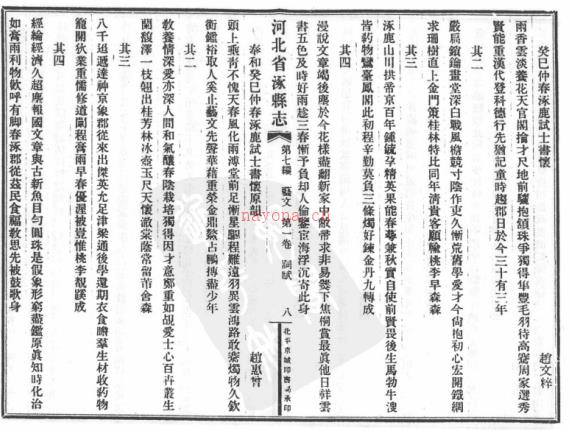 癸巳仲春涿鹿試士書懷
趙文粹
雨香雲淡養花天官閣掄才尺地前驪抱頷珠爭獨得隼豐毛羽待高騫周家選秀
賢能重漢代登科德行先猶記童時趨郡日於今三十有三年
其二
嚴扃鎖鑰畫堂深白戰風檐競寸陰作吏久慚荒舊學愛才今尙抱初心宏開鐵網
求瑚樹直上金門策桂林特比同年清貴客願輸桃李早森森
其三
涿鹿山川拱帝京百年鍾毓孕精英果能春華兼秋實自使前賢畏後生馬勃牛溲
皆藥物鸞臺鳳閣此初程辛勤莫負三條燭好鍊金丹九轉成
其四
漫說文章竭後塵於今花樣盡翻新家中敝帚求非易爨下焦桐賞最眞他日祥雲
書五色及時好雨趁三春慚予負却人倫鑒宦海浮沉寄此身
河北省涿縣志
第七編 藝文 第一卷 詞賦
八
北平京城印書局承印
奉和癸巳仲春涿鹿試士書懷原韻
趙惠曾
頭上乘靑不愧天春風化雨溥堂前足慚星驛程難遠羽異雲鴻路敢騫燭物久欽
衡鑑裕取人奚止藝文先聲華藉重榮金鼎緊占鷗摶盡少年
其二
敎養情深愛亦深人間和氣釀春陰栽培獨得因才意鄭重如覘愛士心百卉叢生
蘭馥澤一枝翹出桂芳林冰壺玉尺天懷澈棠蔭常留芾舍森
其三
八千追遞達神京象郡從來出傑英允足津梁通後學還期衣食贍羣生材收藥物
籠關狄業重儒修道剛程膏雨早春優渥被豈惟桃李靚蹊成
其四
經綸經濟久超塵報國文章與古新魚目勻圓珠是假象形窮盡鑑原眞知時化治
如膏雨利物歡呼有脚春涿郡從茲民食福敎思先被鼓歌身
nayona.cn